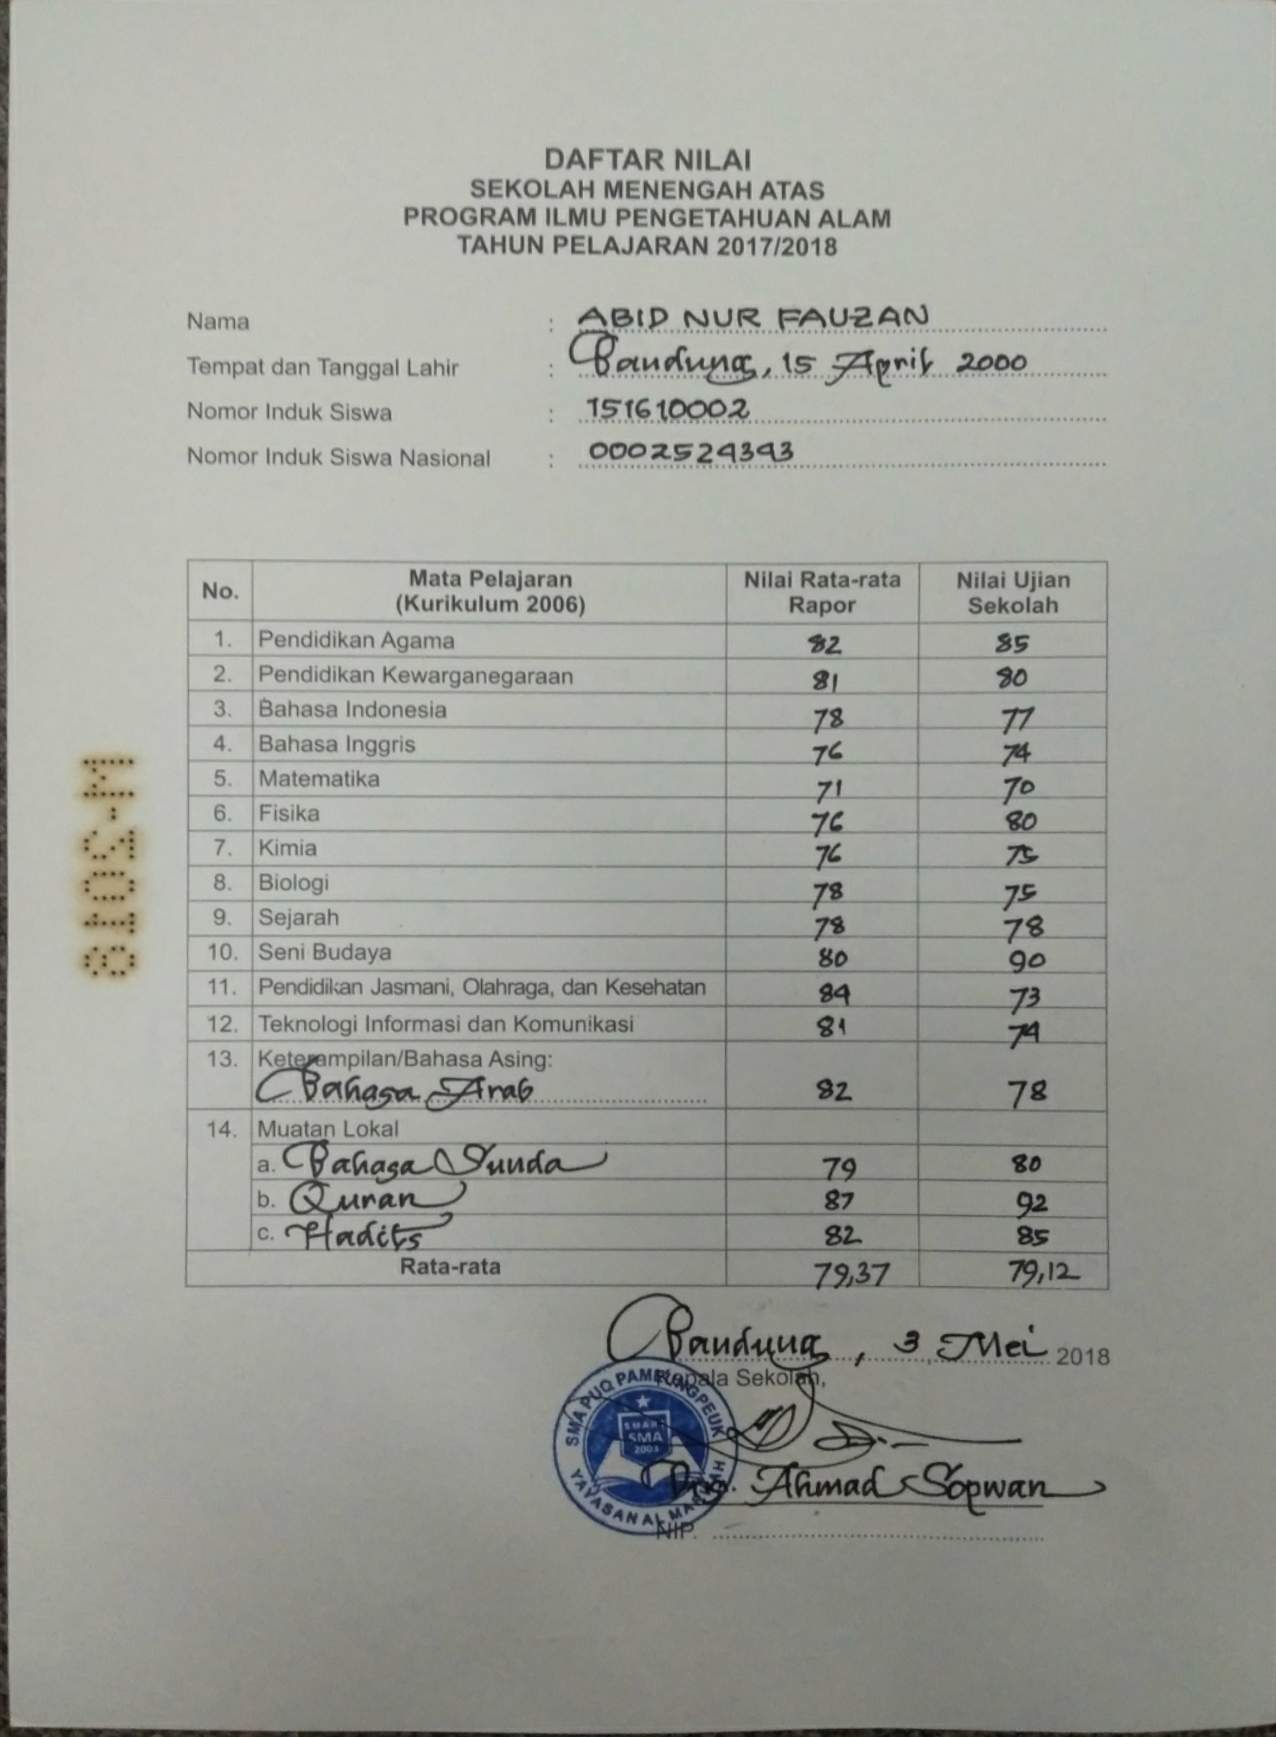 DAFTAR NILAI
SEKOLAH MENENGAH ATAS
PROGRAM ILMU PENGETAHUAN ALAM
TAHUN PELAJARAN 2017/2018
Nama : ABID NUR FAUZAN
Tempat dan Tanggal Lahir : Bandung, 15 April 2000
Nomor Induk Siswa : 151610002
Nomor Induk Siswa Nasional : 0002524343
No. Mata Pelajaran (Kurikulum 2006) Nilai Rata-rata Rapor Nilai Ujian Sekolah
1. Pendidikan Agama 82 85
2. Pendidikan Kewarganegaraan 81 80
3. Bahasa Indonesia 78 77
4. Bahasa Inggris 76 74
5. Matematika 71 70
6. Fisika 76 80
7. Kimia 76 75
8. Biologi 78 75
9. Sejarah 78 78
10. Seni Budaya 80 90
11. Pendidikan Jasmani, Olahraga, dan Kesehatan 84 73
12. Teknologi Informasi dan Komunikasi 81 74
13. Keterampilan/Bahasa Asing:
Bahasa Arab 82 78
14. Muatan Lokal
a. Bahasa Sunda 79 80
b. Quran 87 92
c. Hadits 82 85
Rata-rata 79,37 79,12
M-2018
Bandung, 3 Mei 2018
Kepala Sekolah,
SMA PUQ PAMEUNGPEUK
SMA
YAYASAN AL
Drs. Ahmad Sopwan
NIP.